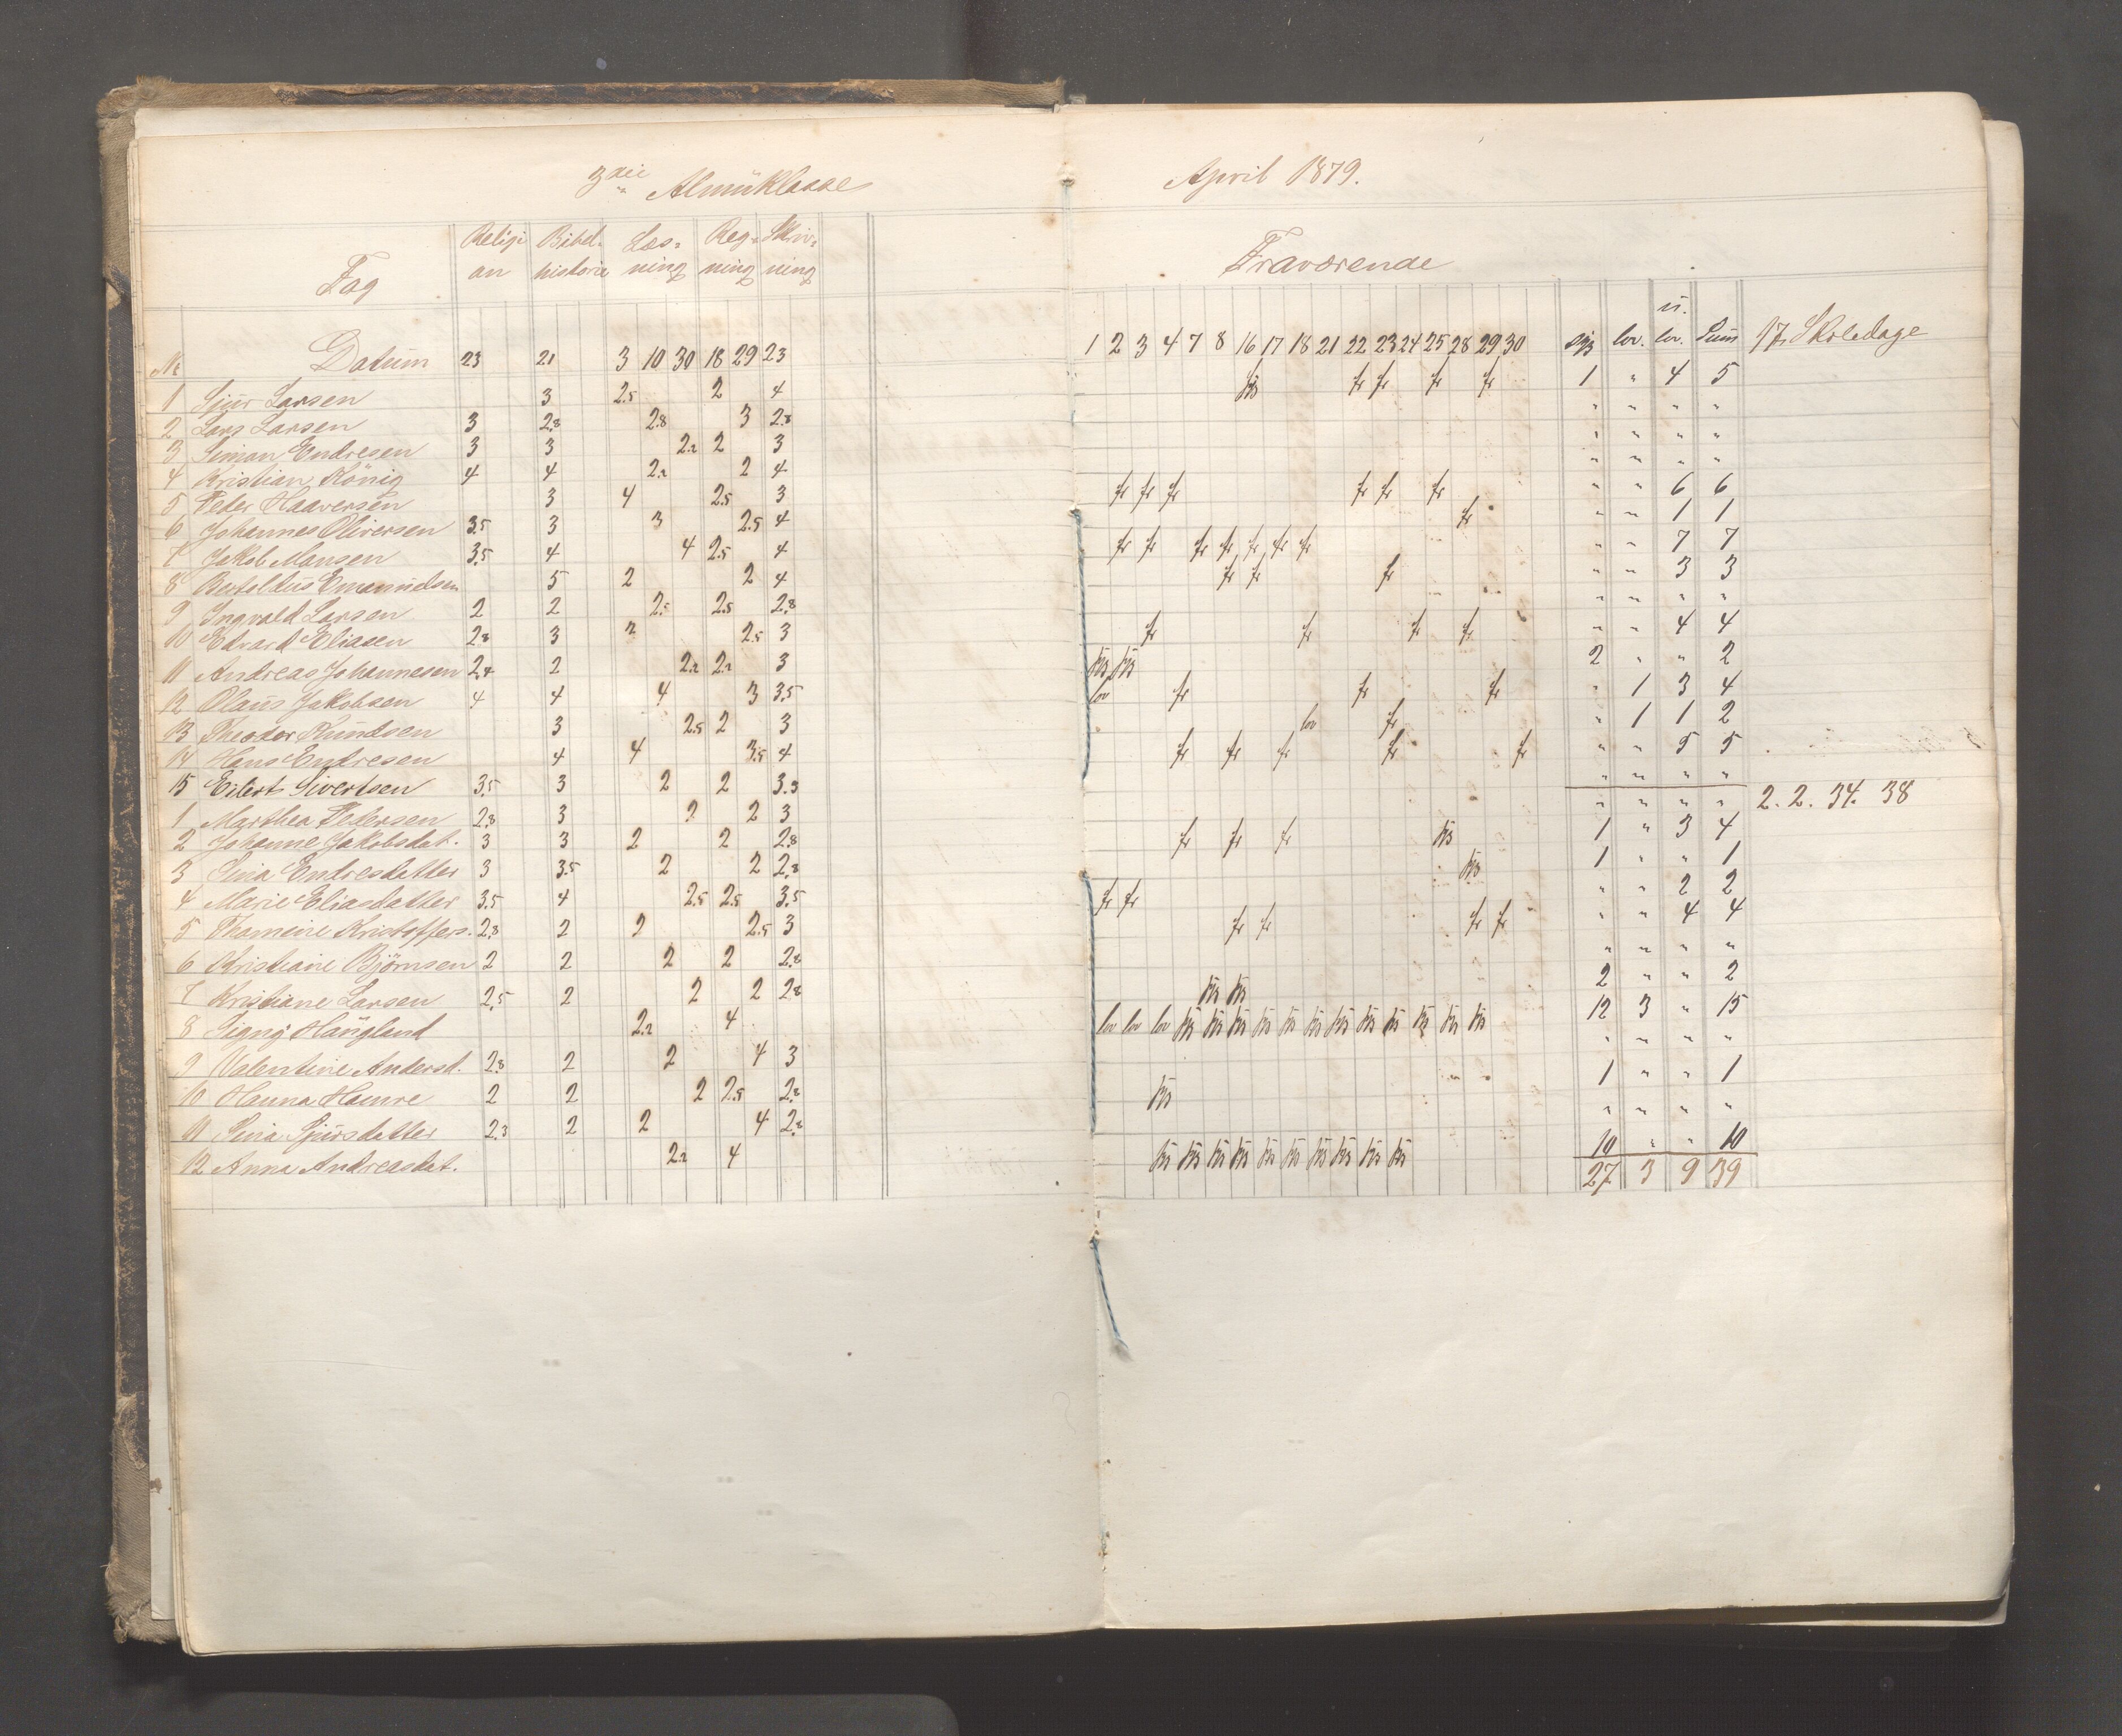 3die Almüklasse
April 1879.
Fag Religion Bibelhistorie Læsning Regning Skrivning
Fraværende
No Datum 23 21 3 10 30 18 29 23
1 2 3 4 7 8 16 17 18 21 22 23 24 25 28 29 30 syg lov. ü. lov. Süm 17 Skoledage
1 Sjür Larsen 3 2.5 2 4 fr fr fr fr 1 " 4 5
2 Lars Larsen 3 2.8 2.8 3 2.8 " " " "
3 Simon Endresen 3 3 2.2 2 3 " " " "
4 Kristian König 4 4 2.2 2 4 " " " "
5 Peder Haaversen 3 4 2.5 3 fr fr fr fr fr fr " " 6 6
6 Johannes Oliversen 3.5 3 3 2.5 4 fr " " 1 1
7 Jakob Monsen 3.5 4 4 2.5 4 fr fr fr fr fr fr fr " " 7 7
8 Bertoldus Emanuelsen 5 2 2 4 fr fr fr " " 3 3
9 Ingvald Larsen 2 2 2.5 2.5 2.8 " " " "
10 Edvard Eliasen 2.8 3 2 2.5 3 fr fr fr fr " " 4 4
11 Andreas Johannesen 2.8 2 2.2 2.2 3 2 " " 2
12 Olaüs Jakobsen 4 4 4 3 3.5 lov fr fr fr " 1 3 4
13 Theodor Knüdsen 3 2.5 2 3 lov fr " 1 1 2
14 Hans Endresen 4 4 3.5 4 fr fr fr fr fr " " 5 5
15 Eilert Sivertsen 3.5 3 2 2 3.3 " " " "
2. 2. 34. 38
1 Marthea Pedersen 2.8 3 2 2 3 " " " "
2 Johanne Jakobsdat. 3 3 2 2 2.8 fr fr fr 1 " 3 4
3 Sina Endresdatter 3 3.5 2 2 2.8 1 " " 1
4 Marie Eliasdatter 3.5 4 2.5 2.5 3.5 fr fr " " 2 2
5 Thomine Kristoffers. 2.8 2 2 2.5 3 fr fr fr fr " " 4 4
6 Kristiane Björnsen 2 2 2 2 2.8 " " " "
7 Kristiane Larsen 2.5 2 2 2 2.8 2 " " 2
8 Signy Haügland 2.2 4 lov lov lov 12 3 " 15
9 Valentine Andersd. 2.8 2 2 4 3 " " " "
10 Hanna Hamre 2 2 2 2.5 2.8 1 " " 1
11 Sina Sjürsdatter 2.3 2 2 4 2.8 " " " "
12 Anna Andreasdat. 2.2 4 10 " " 10
27 3 9 39